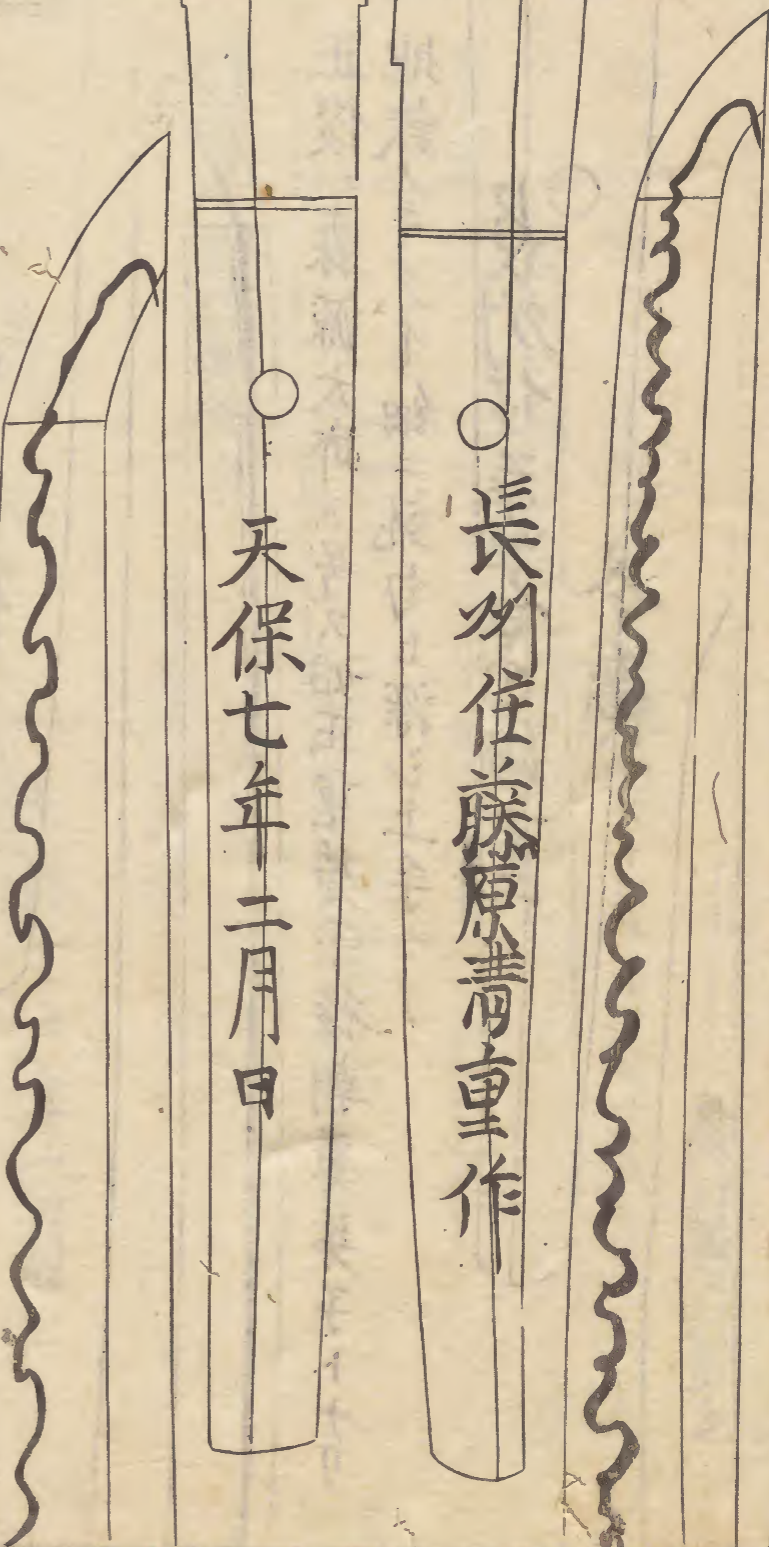 長州住藤原清重作
天保七年二月日